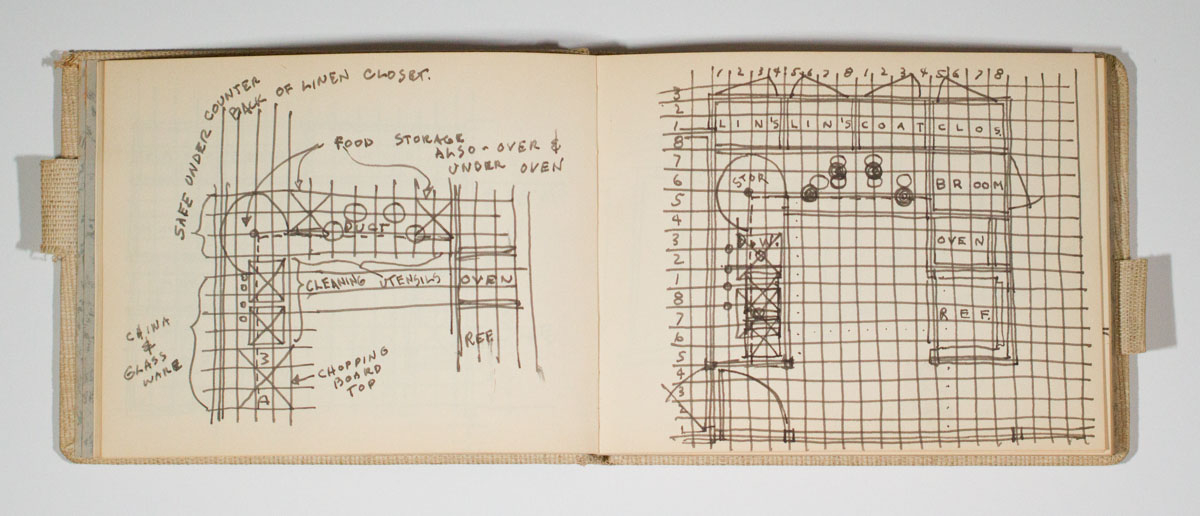 SAFE UNDER COUNTER
BACK OF LINEN CLOSET.
FOOD STORAGE
ALSO - OVER &
UNDER OVEN
DUCT
CLEANING UTENSILS
OVEN
REF
CHINA
&
GLASS
WARE
B
A
CHOPPING
BOARD
TOP
1 2 3 4 5 6 7 8 1 2 3 4 5 6 7 8
3
2
1
8
7
6
5
4
3
2
1
8
7
6
5
4
3
2
1
LIN'S LIN'S COAT CLOS.
STOR
BROOM
D.W.
OVEN
REF.